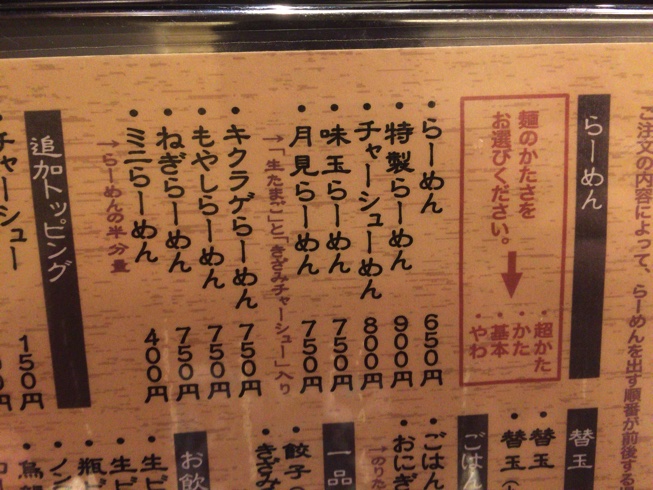 ご注文の内容によって、らーめんを出す順番が前後する
らーめん
麺のかたさを
お選びください。
・超かた
・かた
・基本
・やわ
・らーめん 650円
・特製らーめん 900円
・チャーシューめん 800円
・味玉らーめん 750円
・月見らーめん 750円
→「生たまご」と「きざみチャーシュー」入り
・キクラゲらーめん 750円
・もやしらーめん 750円
・ねぎらーめん 750円
・ミニらーめん 400円
→らーめんの半分量
追加トッピング
・チャーシュー 150円
替玉
・替玉
・替玉
ごはん
・ごはん
・おにぎ
→のりた
一品
・餃子
・きざみ
お飲
・生ビ
・生ビ
・瓶ビ
・ノン
・烏龍